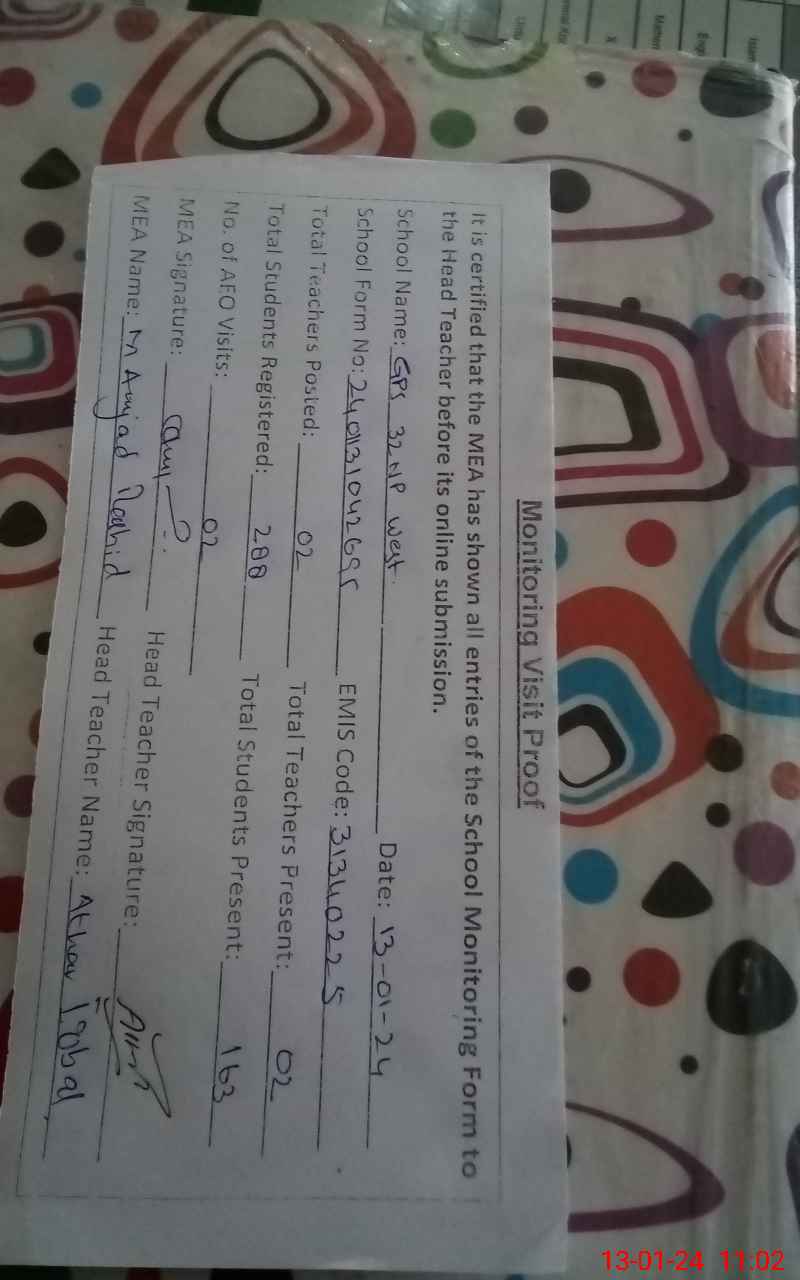 Monitoring Visit Proof
It is certified that the MEA has shown all entries of the School Monitoring Form to
the Head Teacher before its online submission.
School Name: GPS 32 NP West Date: 13-01-24
School Form No: EMIS Code: 31340225
Total Teachers Posted: 02 Total Teachers Present: 02
Total Students Registered: 200 Total Students Present: 163
No. of AEO Visits: 02
MEA Signature: Head Teacher Signature:
MEA Name: M Amjad Rashid Head Teacher Name: Athar Iqbal
13-01-24 11:02